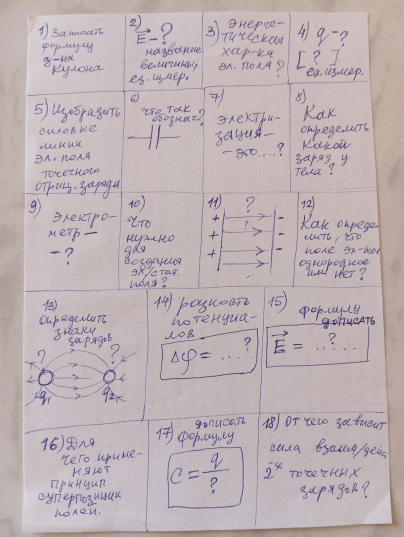 1) Записать
формулу
з-на
Кулона
2) E – ?
название
величины,
ед. измер.
3) Энерге-
тическая
хар-ка
эл. поля?
4) q – ?
[ ? ]
ед. измер.
5) Изобразить
силовые
линии
эл. поля
точечного
отриц. заряда
6)
что так
обознач?
7)
Электри-
зация –
– это ....?
8)
Как
определить
какой
заряд у
тела?
9)
Электро-
метр –
– ?
10)
Что
нужно
для
создания
эл/стат.
поля?
11)
?
+ –
?
+ –
+ –
+ –
12)
Как опреде-
лить, что
поле эл-кое
однородное
или нет?
13)
Определить
знаки
зарядов
? ?
q1 q2
14) разность
потенциа-
лов
Δφ = ....?
15)
формулу
дописать
E = ..?..
16) Для
чего приме-
няют
принцип
суперпозиции
полей.
17) дописать
формулу
C = q
?
18) От чего зависит
сила взаим/дейст.
2-х точечных
зарядов?